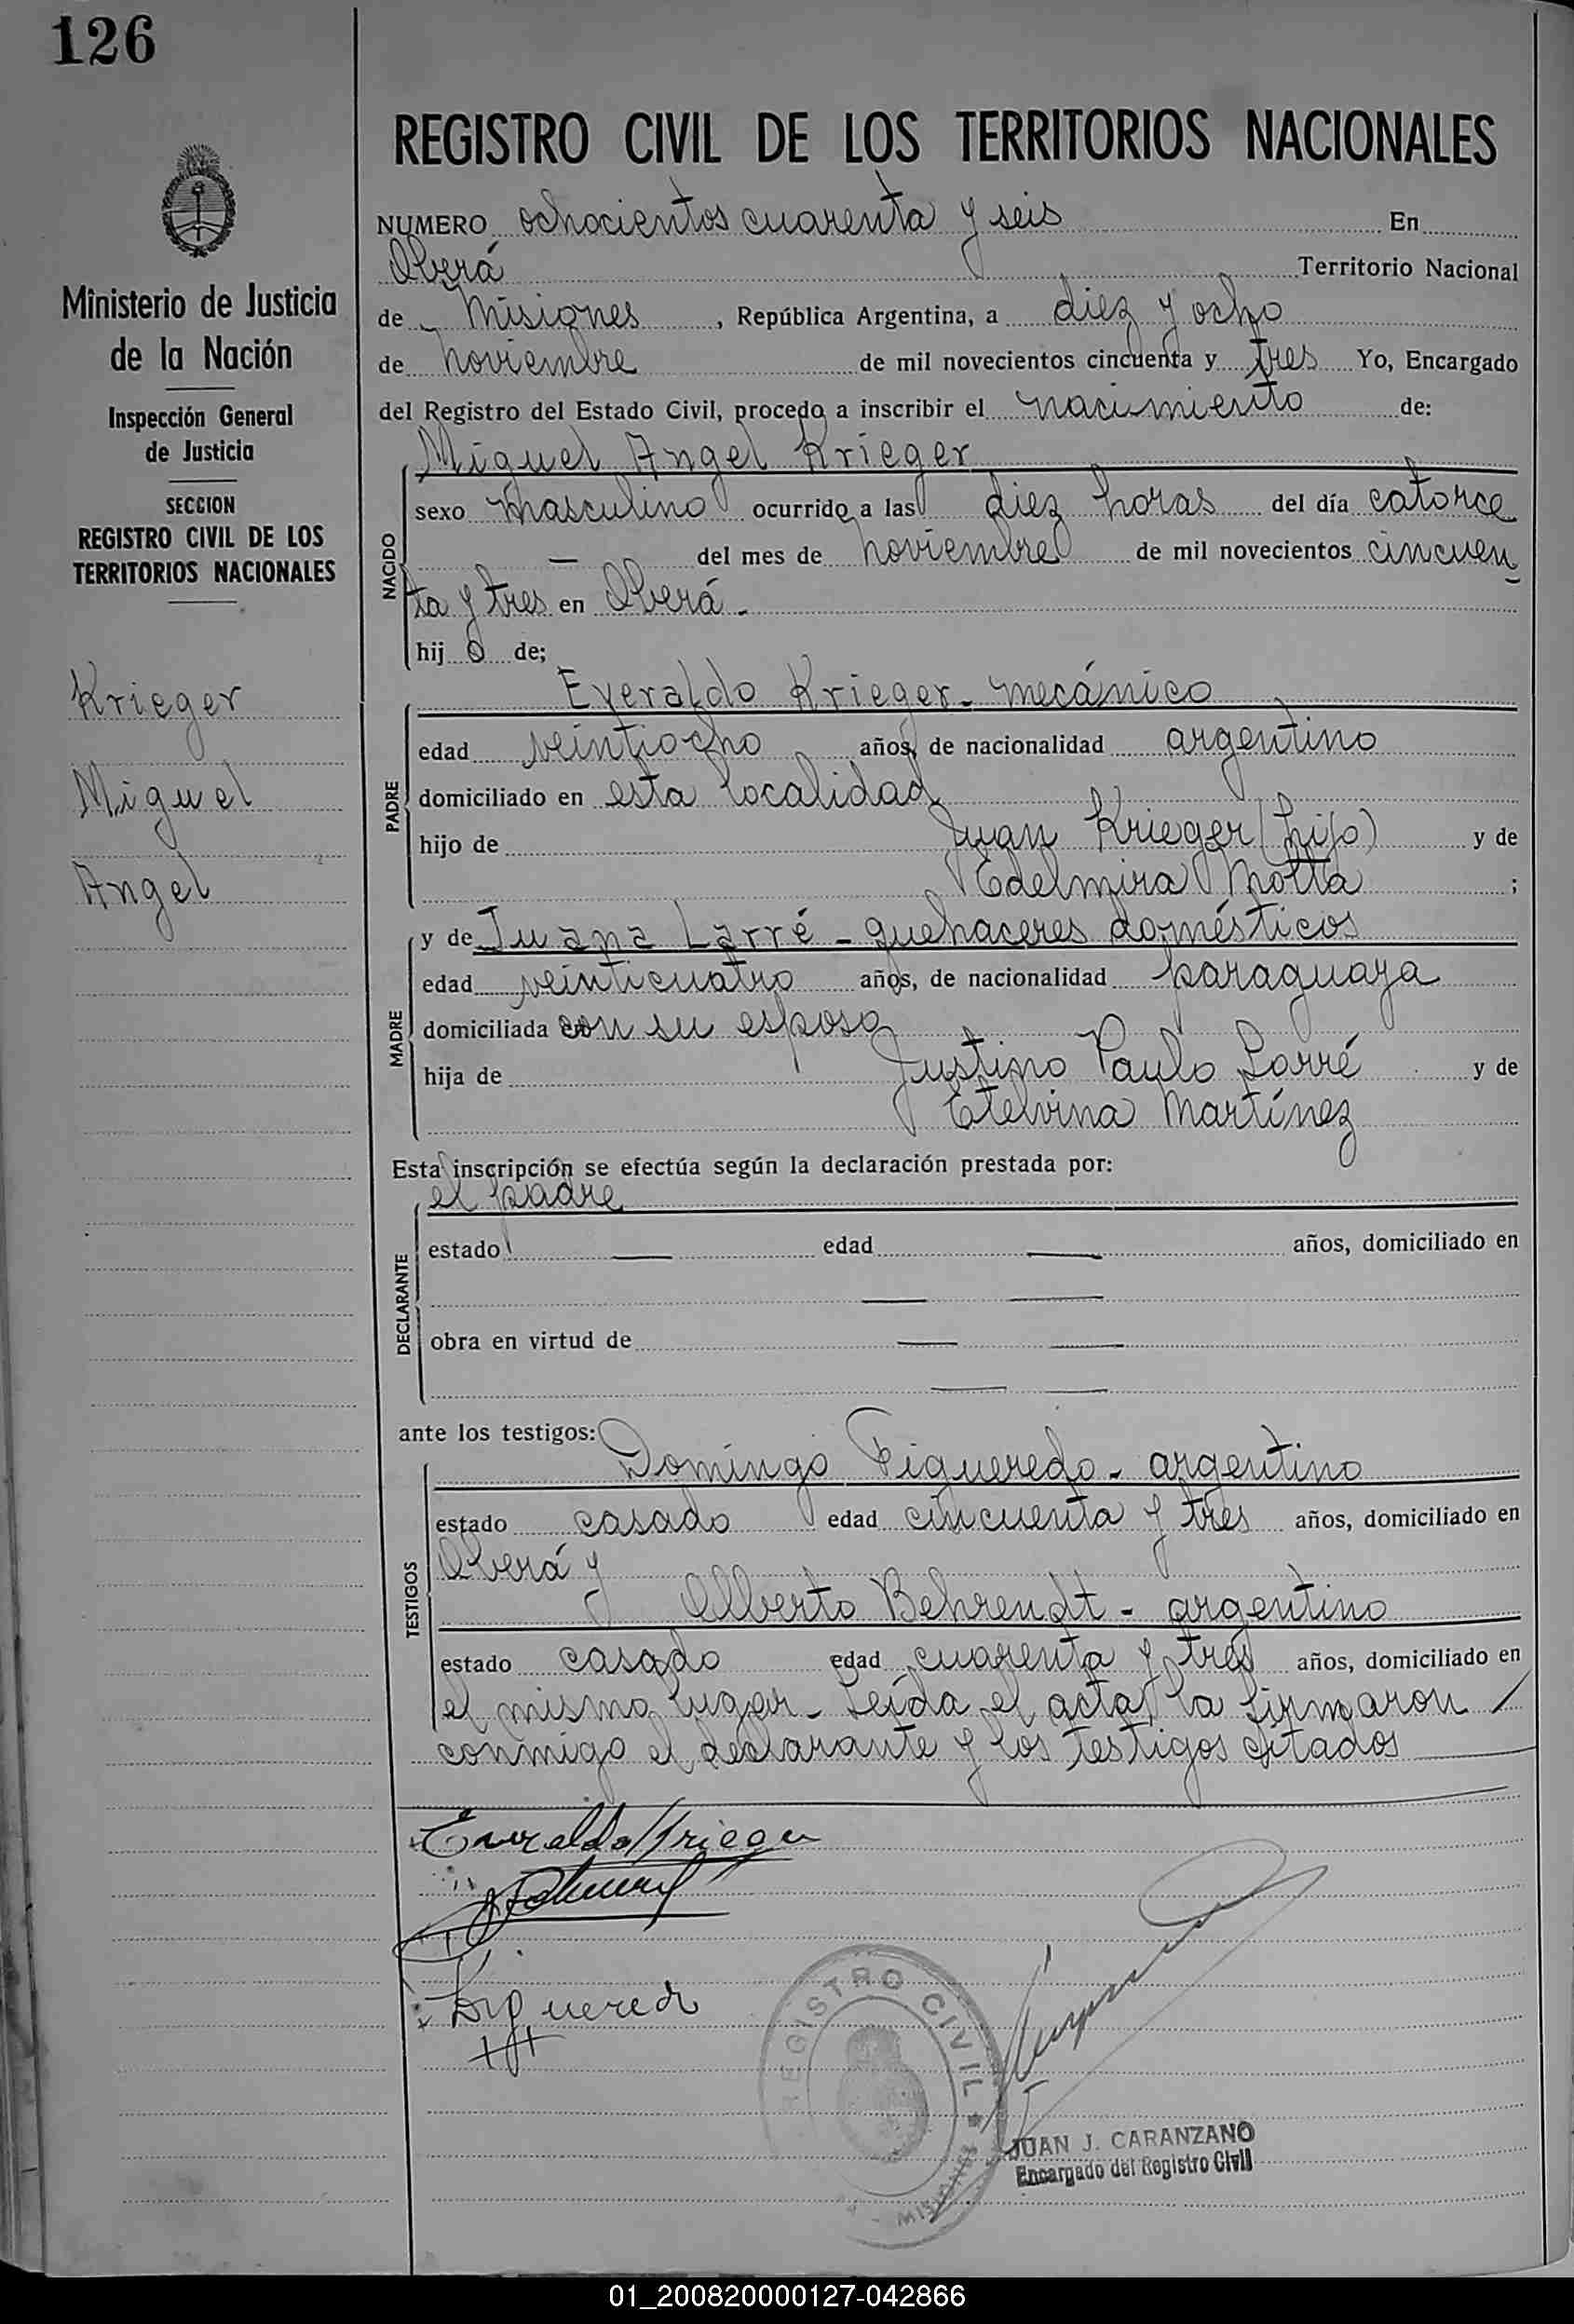 126
REGISTRO CIVIL DE LOS TERRITORIOS NACIONALES
Ministerio de Justicia
de la Nación
Inspección General
de Justicia
SECCION
REGISTRO CIVIL DE LOS
TERRITORIOS NACIONALES
Krieger
Miguel
Angel
NUMERO ochocientos cuarenta y seis En
Oberá Territorio Nacional
de Misiones, República Argentina, a diez y ocho
de noviembre de mil novecientos cincuenta y tres Yo, Encargado
del Registro del Estado Civil, procedo a inscribir el nacimiento de:
NACIDO
Miguel Angel Krieger
sexo masculino ocurrido a las diez horas del día catorce
— del mes de noviembre de mil novecientos cincuen
ta y tres en Oberá.
hijo de;
PADRE
Everaldo Krieger - mecánico
edad veintiocho años, de nacionalidad argentino
domiciliado en esta localidad
hijo de Juan Krieger (hijo) y de
Edelmira Motta ;
MADRE
y de Juana Larré - quehaceres domésticos
edad veinticuatro años, de nacionalidad paraguaya
domiciliada con su esposo
hija de Justino Paulo Larré y de
Etelvina Martínez
Esta inscripción se efectúa según la declaración prestada por:
DECLARANTE
el padre
estado — edad — años, domiciliado en
— —
obra en virtud de — —
— —
ante los testigos:
TESTIGOS
Domingo Figueredo - argentino
estado casado edad cincuenta y tres años, domiciliado en
Oberá y
Alberto Behrendt - argentino
estado casado edad cuarenta y tres años, domiciliado en
el mismo lugar - Leída el acta, la firmaron /
conmigo el declarante y los testigos citados
Everaldo Krieger
Figueredo
REGISTRO CIVIL
MISIONES
JUAN J. CARANZANO
Encargado del Registro Civil
01_200820000127-042866